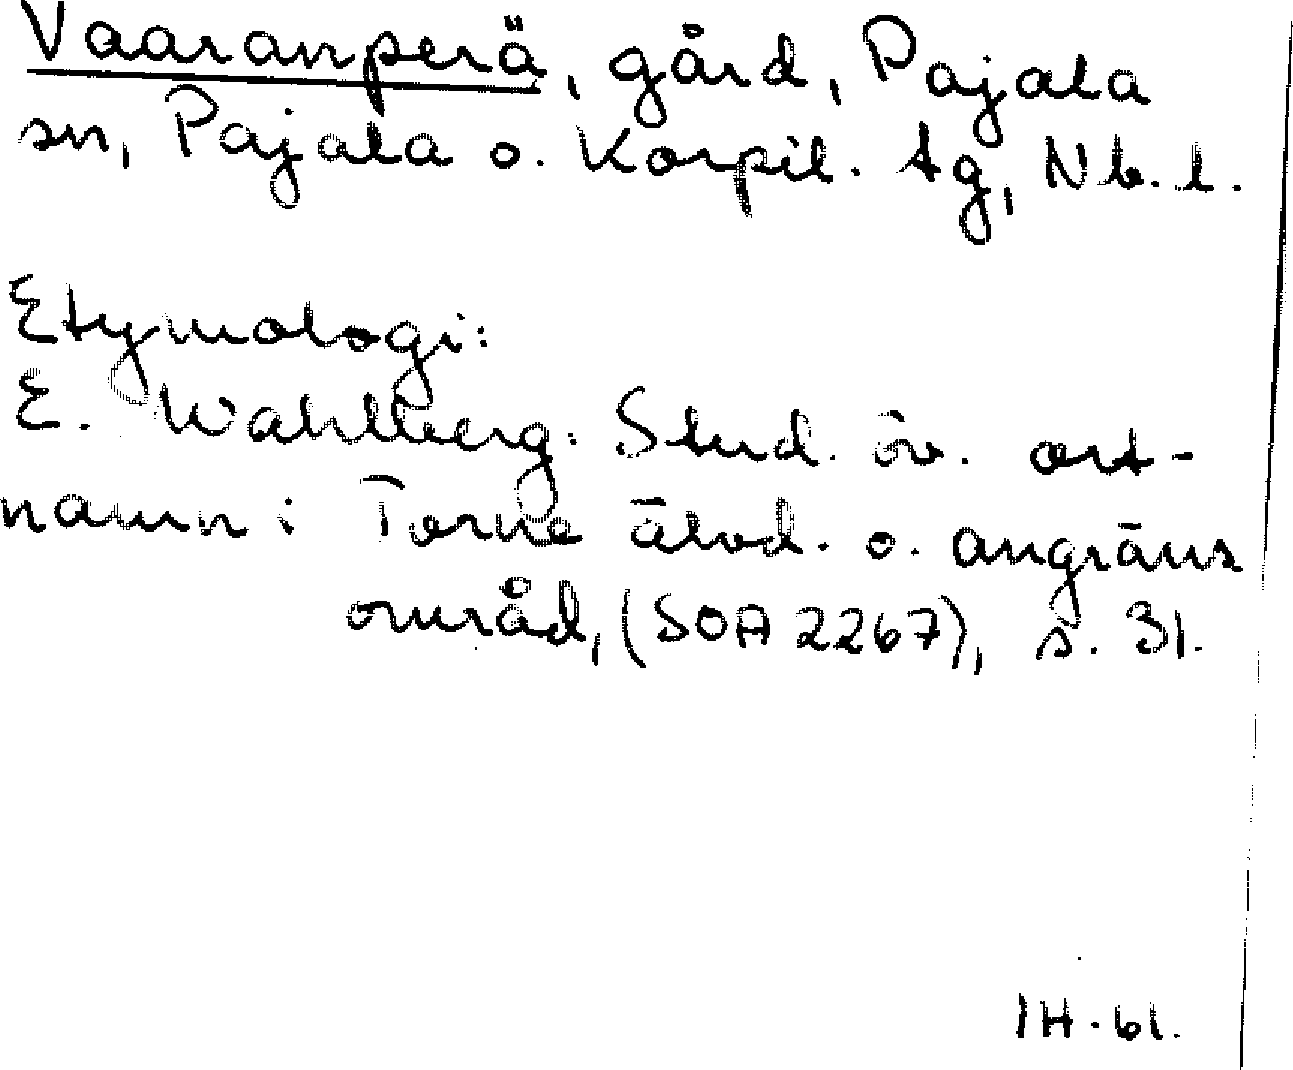 Vaaranperä, gård, Pajala
sn, Pajala o. Korpil. tg, Nb. l.
Etymologi:
E. Wahlberg. Stud. öv. ort-
namn i Torne älvd. o. angräns
områd, (SOA 2267), s. 31.
IH. 61.